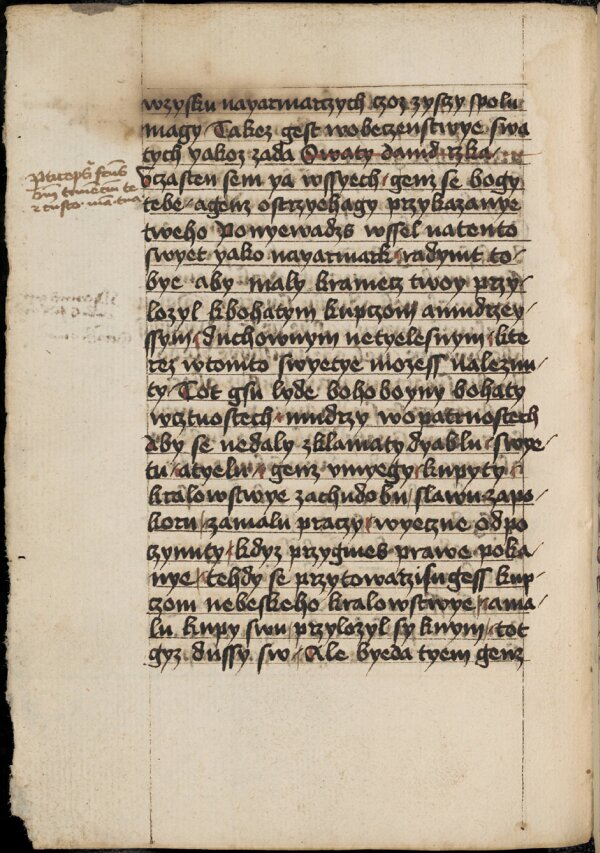 wzysku nayarmarczych czoz zyszy spolu
magy Takez gest wobeczenstwye swa
tych yakoz zada Swaty dawid rzka
vczasten sem ya wssyech genz se bogy
tebe agenz ostrzyehagy przykazanye
tweho Ponyewadzs wssel natento
swyet yako nayarmark radymt to
bye aby maly kramecz twoy przy
lozyl kbohatym kupczom amudrzey
ssym duchownym netyelesnym kte
rez wtomto swyetye mozess naleznu
ty Tot gsu lyde bohoboyny bohaty
wcztnostech mudrzy wopatrnostech
aby se nedaly zklamaty dyablu swye
tu atyelu genz vmyegy kupyty
kralowstwye zachudobu slawu zapo
koru zamalu praczy wyeczne odpo
czynuty kdyz przygmes prawe poka
nye tehdy se przytowarzisugess kup
czom nebeskeho kralowstwye ama
lu kupy swu przylozyl sy knym tot
gyz dussy sw Ale byeda tyem genz